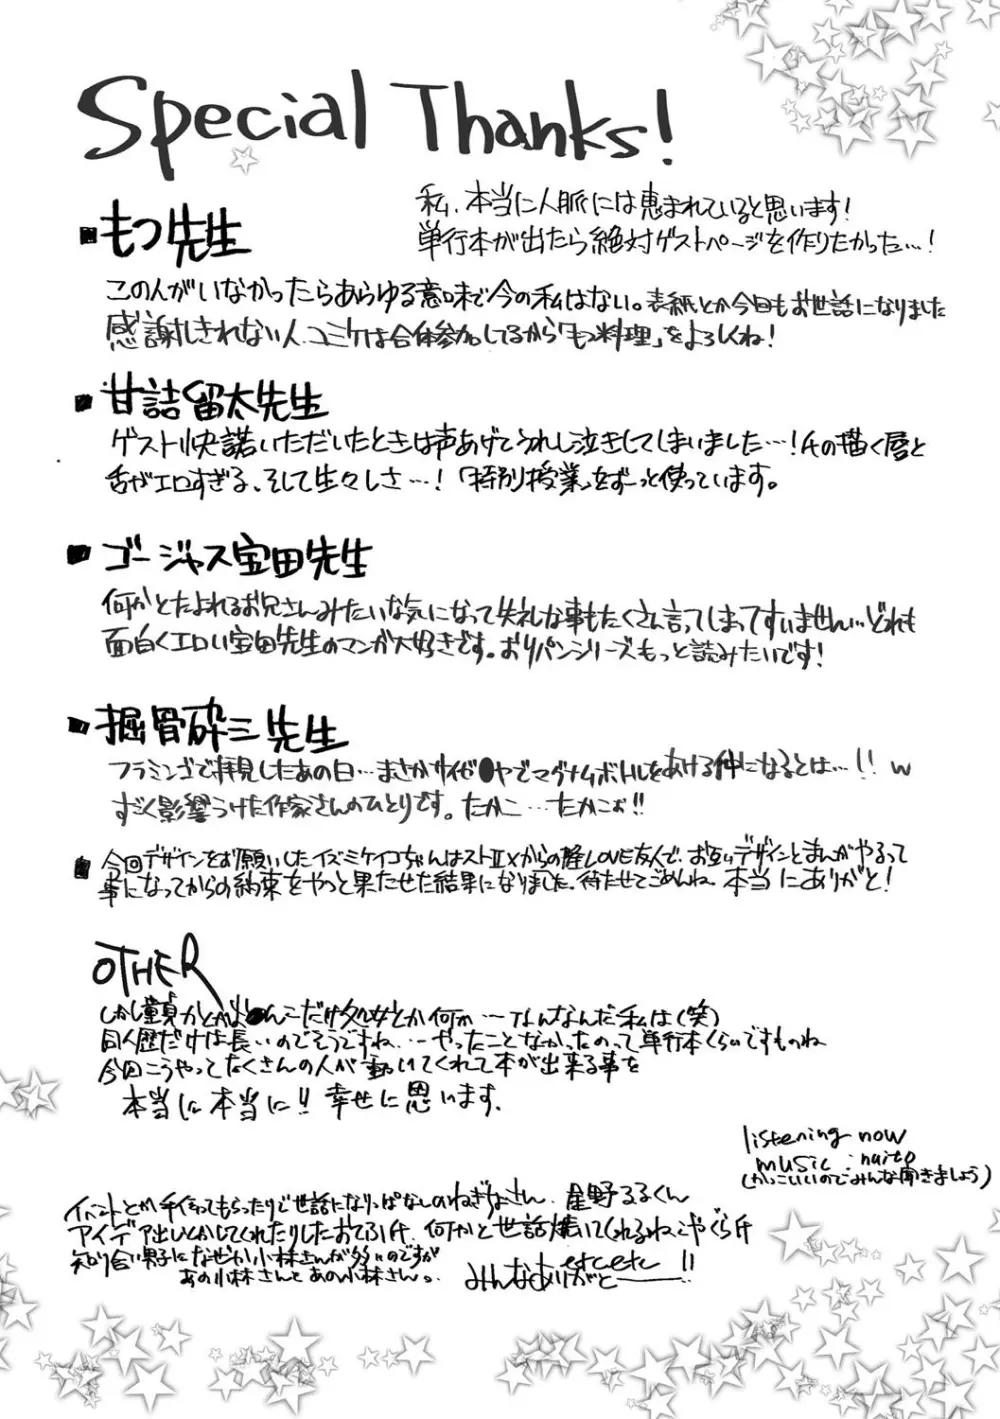 Special Thanks!
私、本当に人脈には恵まれていると思います!
単行本が出たら絶対ゲストページを作りたかった…!
■もつ先生
この人がいなかったらあらゆる意味で今の私はない。表紙とか今回もお世話になりました
感謝しきれない人。コミケは合体参加してるから「もつ料理」をよろしくね!
■甘詰留太先生
ゲスト快諾いただいたときは声あげてうれし泣きしてしまいました…!その描く唇と
舌がエロすぎる、そして生々しさ…!「特別授業」をずーっと使っています。
■ゴージャス宝田先生
何かとたよれるお兄さんみたいな気になって失礼な事もたくさん言ってしまってすいません…どれも
面白くエロい宝田先生のマンガ大好きです。おりパンシリーズもっと読みたいです!
■掘骨砕三先生
フラミンゴで拝見したあの日…まさかサイゼ●ヤでマグナムボトルをあける仲になるとは…!!w
すごく影響うけた作家さんのひとりです。たかこ…たかこぉ!!
■今回デザインをお願いしたイズミケイコちゃんはストⅡXからの降LOVE友人で、お互いデザインとまんがやるって
事になってからの約束をやっと果たせた結果になりました。待たせてごめんね。本当にありがと!
OTHER
しかし童貞かとか●んこだけ処女とか何か…なんなんだ私は(笑)
同人歴だけは長いのでそうですね…やったことなかったのって単行本くらいですものね
今回こうやってたくさんの人が動いてくれて本が出来る事を
本当に本当に!!幸せに思います。
listening now
music : naito
(かっこいいのでみんな聞きましょう)
イベントとか手伝ってもらったりで世話になりっぱなしのねぎなさん、星野るるくん
アイデア出しとかしてくれたりしたおてふけ、何かと世話焼いてくれるねこやぐらサ
知り合い男子になぜか小林さんが多いのですが
あの小林さんとあの小林さん。
etc etc
みんなありがとー!!